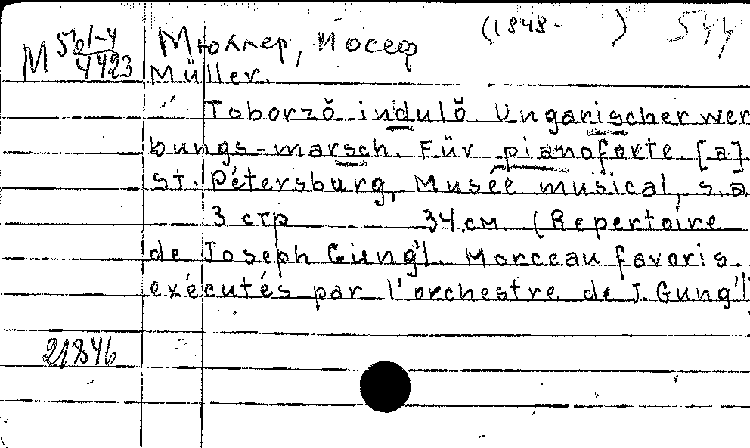 Мюллер, Иосеф (1848- ) 544
М 501-4
4423
Müller.
Toborzŏ indulŏ. Ungarischer wer
bungs-marsch. Für pianoforte. [a].
St. Pétersburg, Musée musical, s.a
3 стр 34 см. (Repertoire
de Joseph Gung'l. Morceau favoris.
exécutés par l'orchestre de J. Gung'l
21846